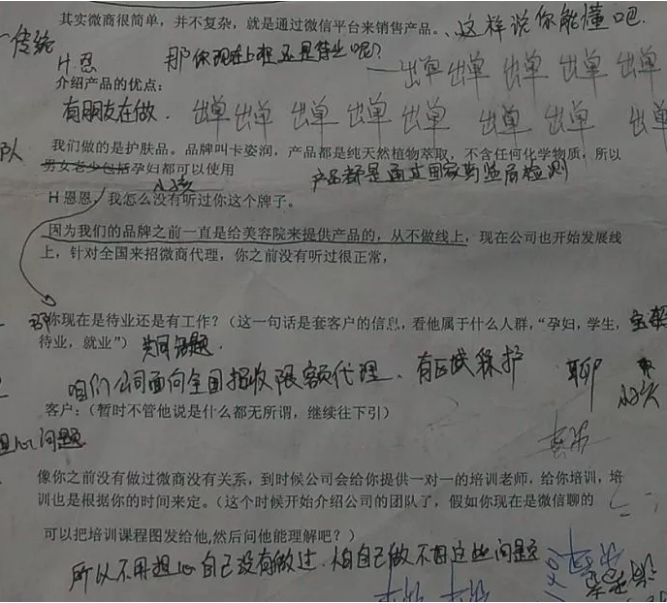 其实微商很简单，并不复杂，就是通过微信平台来销售产品。、这样说你能懂吧.
传统
H.恩 那你现在上班还是待业呢？
一出单 出单 出单 出单 出单
介绍产品的优点：
有朋友在做. 出单出单 出单 出单 出单 出单 出单 出单
队 我们做的是护肤品。品牌叫卡姿润，产品都是纯天然植物萃取，不含任何化学物质，所以
男女老少包括孕妇都可以使用
小孩 产品都是通过国家药监局检测
H 恩恩，我怎么没有听过你这个牌子。
因为我们的品牌之前一直是给美容院来提供产品的，从不做线上，现在公司也开始发展线
上，针对全国来招微商代理，你之前没有听过很正常，
那你现在是待业还是有工作？（这一句话是套客户的信息，看他属于什么人群，“孕妇，学生，宝妈
待业，就业”）共同话题.
咱们公司面向全国招收限额代理. 有区域保护 聊
客户：（暂时不管他说是什么都无所谓，继续往下引）
担心问题
像你之前没有做过微商没有关系，到时候公司会给你提供一对一的培训老师，给你培训，培
训也是根据你的时间来定。（这个时候开始介绍公司的团队了，假如你现在是微信聊的
可以把培训课程图发给他,然后问他能理解吧？）
所以不用担心自己没有做过. 怕自己做不用这些问题